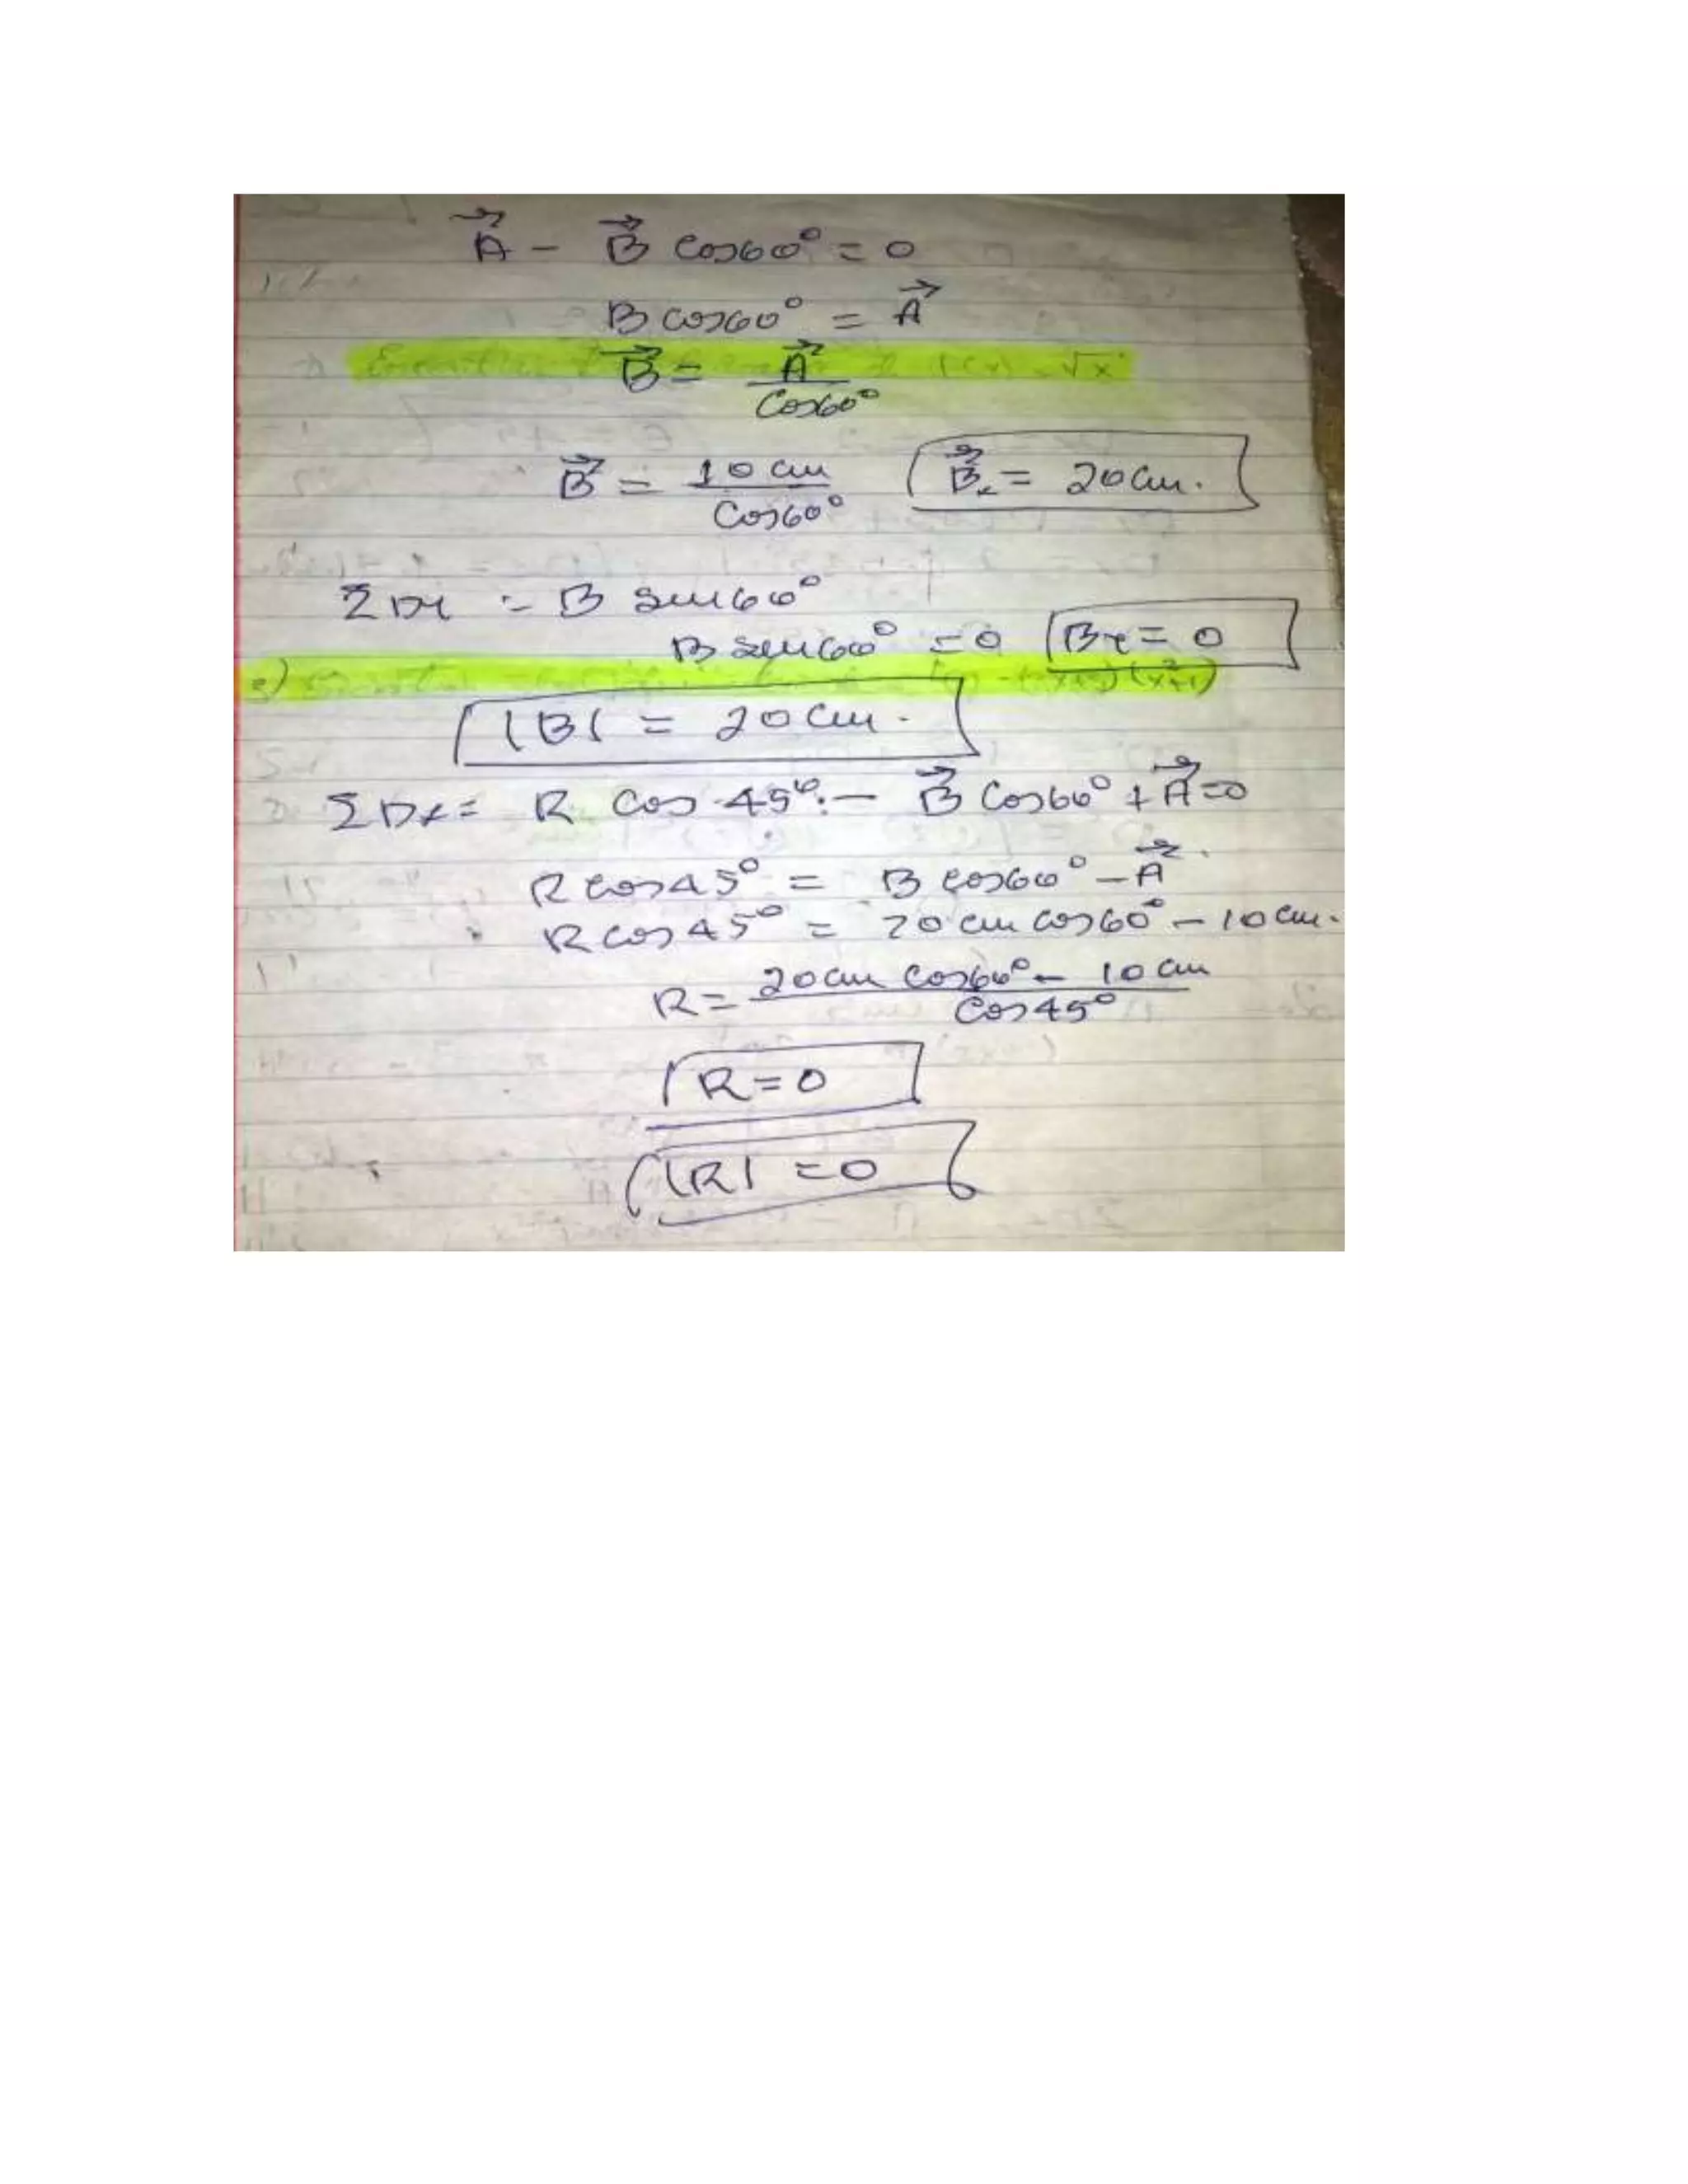 A⃗ - B⃗ cos60° = 0
B cos60° = A⃗
B⃗ = A⃗ / cos60°
B⃗ = 10 cm / cos60° B⃗x = 20 cm.
ΣDy = B sen60°
B sen60° = 0 By = 0
|B| = 20 cm.
ΣDx = R cos 45° - B⃗ cos60° + A⃗ = 0
R cos45° = B cos60° - A⃗
R cos45° = 20 cm cos60° - 10 cm.
R = 20 cm cos60° - 10 cm / cos45°
R = 0
|R| = 0